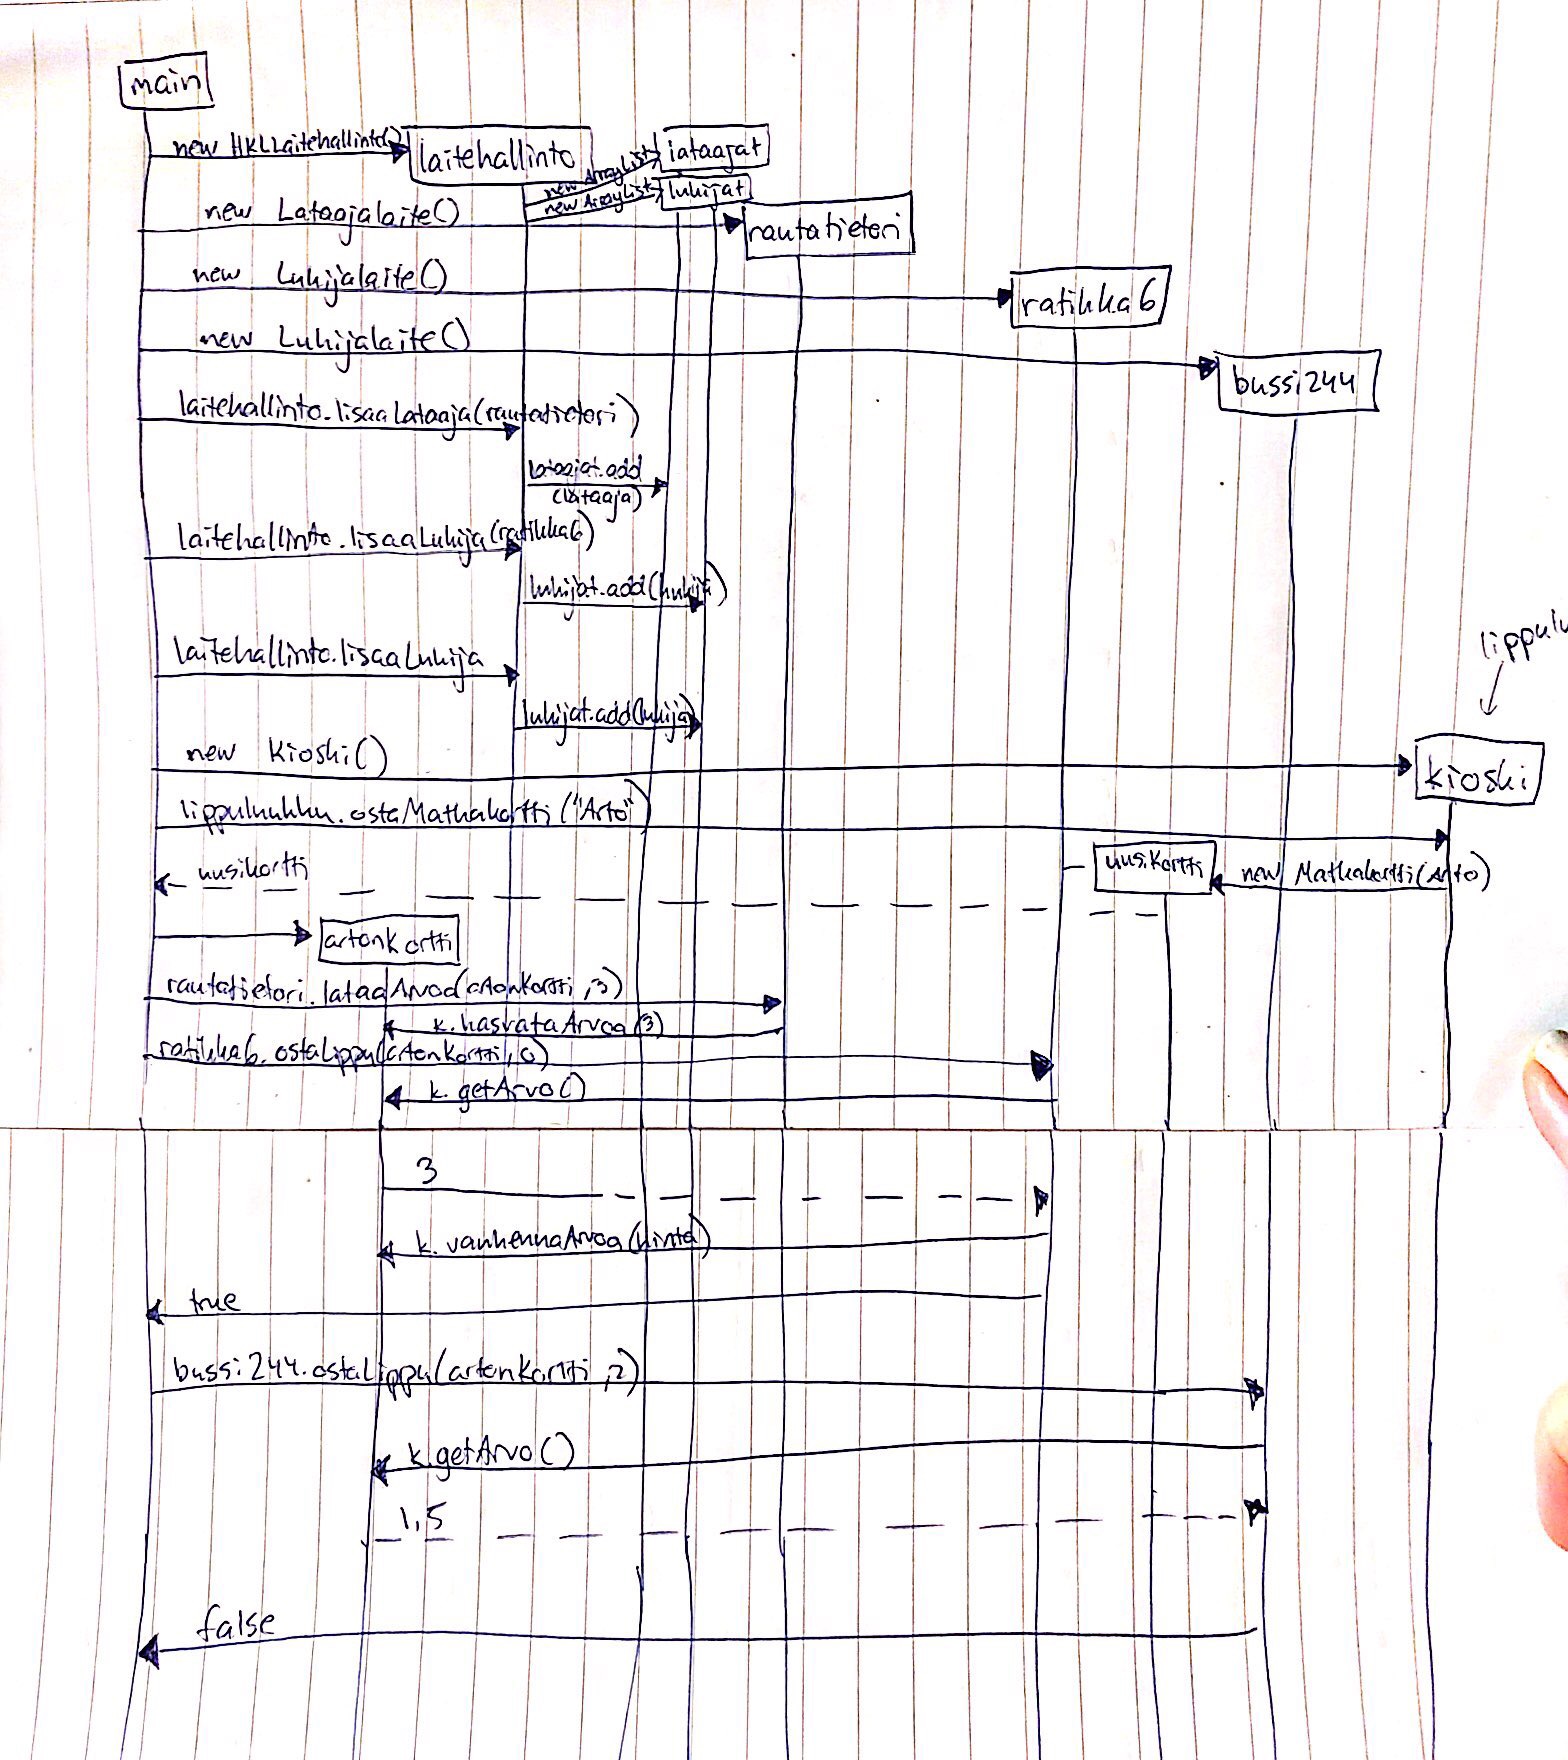 main
new HKLLaitehallinto()
laitehallinto
new ArrayList
lataajat
new ArrayList
lukijat
new Lataajalaite()
rautatietori
new Lukijalaite()
ratikka6
new Lukijalaite()
bussi244
laitehallinto.lisaaLataaja(rautatietori)
lataajat.add
(lataaja)
laitehallinto.lisaaLukija(ratikka6)
lukijat.add(lukija)
laitehallinto.lisaaLukija
lukijat.add(lukija)
new Kioski()
kioski
lippuluukku.ostaMatkakortti("Arto")
uusikortti
uusiKortti
new Matkakortti(Arto)
artonkortti
rautatietori.lataaArvoa(artonKortti,3)
k.kasvataArvoa(3)
ratikka6.ostaLippu(artonKortti,0)
k.getArvo()
3
k.vahennaArvoa(hinta)
true
bussi244.ostaLippu(artonKortti,2)
k.getArvo()
1,5
false